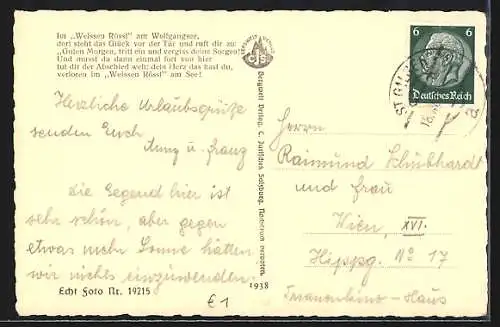 Im „Weissen Rössl" am Wolfgangsee,
dort steht das Glück vor der Tür und ruft dir zu:
„Guten Morgen, tritt ein und vergiss deine Sorgen!
Und musst du dann einmal fort von hier
tut dir der Abschied weh; dein Herz das hast du,
verloren im „Weissen Rössl" am See!
Herzliche Urlaubsgrüße
senden Euch
Anny u. Franz
Die Gegend hier ist
sehr schön, aber gegen
etwas mehr Sonne hätten
wir nichts einzuwenden.
Echt Foto Nr. 19215
€1
CJS
Bergwelt Verlag, C. Jurischek Salzburg.
1938
6 6
Deutsches Reich
ST. GILGEN
Herrn
Raimund Schubhardt
und Frau
Wien, XVI.
Hippg. No 17
Haus